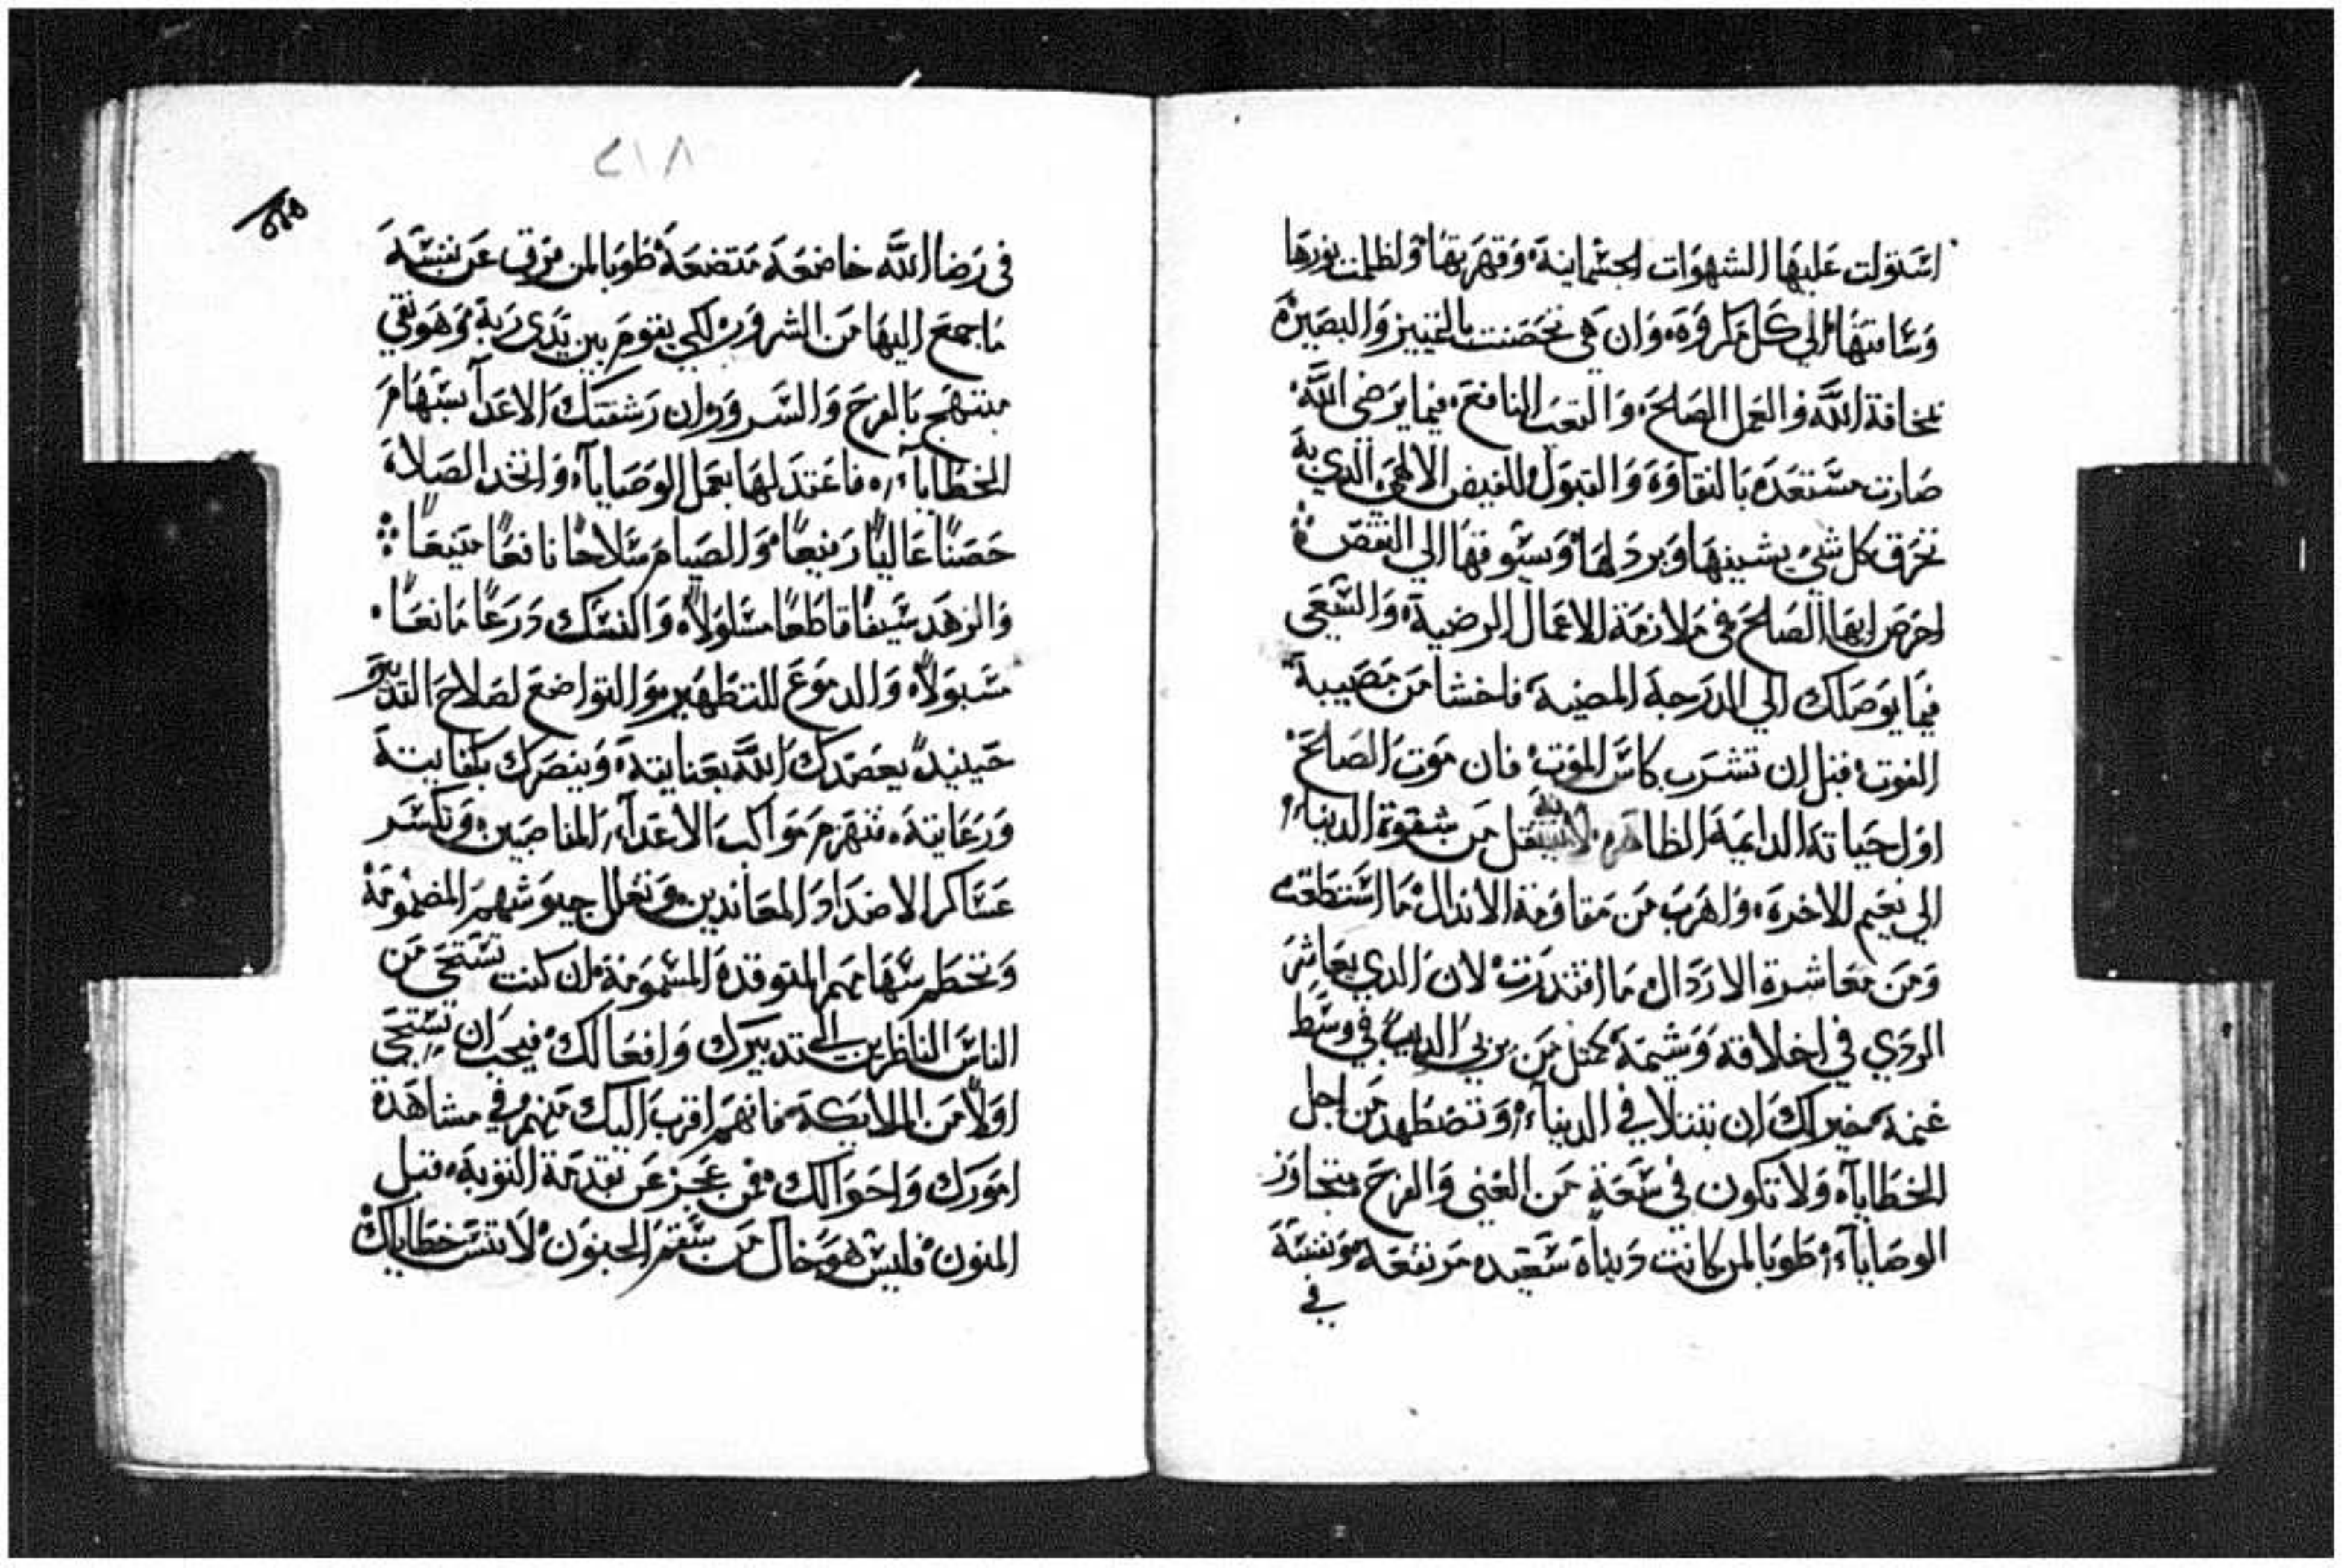 استولت عليها الشهوات الجسمانية وقهرتها واظلمت نورها
وساقتها الي كل مكروه وان هي تحصنت بالتمييز والبصيرة
بمخافة الله والعمل الصالح والتعب النافع فيما يرضي الله
صارت مستعده بالنقاوة والقبول للفيض الالهي الدي به
تحرق كل شي يشينها ويردلها ويسوقها الي النقص
احرص ايها الصالح في ملازمة الاعمال الرضية والسعي
فيما يوصلك الي الدرجة المضية فاخشا من مصيبة
الفوت قبل ان تشرب كاس الموت فان موت الصالح
اول حياته الدايمة الظاهره لانه ينتقل من شقوة الدنيا
الي نعيم الاخرة واهرب من مقاومة الاندال ما استطعت
ومن معاشرة الاردال ما اقتدرت لان الدي يعاشر
الردي في اخلاقه وشيمه كمتل من يربي الديب في وسط
غنمه خير لك ان تبتلا في الدنيا وتضطهد من اجل
الخطايا ولا تكون في سعة من الغني والفرح متجاوز
الوصايا طوبا لمن كانت دنياه سعيده مرتفعة ونفسه
في
٢١٨
في رضا الله خاضعة متضعة طوبا لمن فرق عن نفسه
ما جمع اليها من الشرور لكي يقوم بين يدي ربه وهو نقي
مبتهج بالفرح والسرور وان رشقتك الاعدا بسهام
الخطايا فاعتد لها بعمل الوصايا واتخد الصلاة
حصنا عاليا رفيعا والصيام سلاحا نافعا منيعا
والزهد سيفا قاطعا مسلولا والنسك درعا مانعا
مسبولا والدموع للتطهير والتواضع لصلاح التدبير
حينيد يعضدك الله بعنايته وينصرك بكفايته
ورعايته فتهزم مواكب الاعدا المناصبين وتكسر
عساكر الاضداد المعاندين وتغلل جيوشهم المضمومة
وتحطم سهامهم المتوقدة المسمومة ان كنت تستحي من
الناس الناظرين الي تدبيرك وافعالك فيجب ان تستحي
اولا من الملايكة فانهم اقرب اليك منهم وفي مشاهدة
امورك واحوالك فمن عجز عن تقدمة التوبة قبل
المنون فليس هو خال من سقم الجنون لا تنس خطاياك